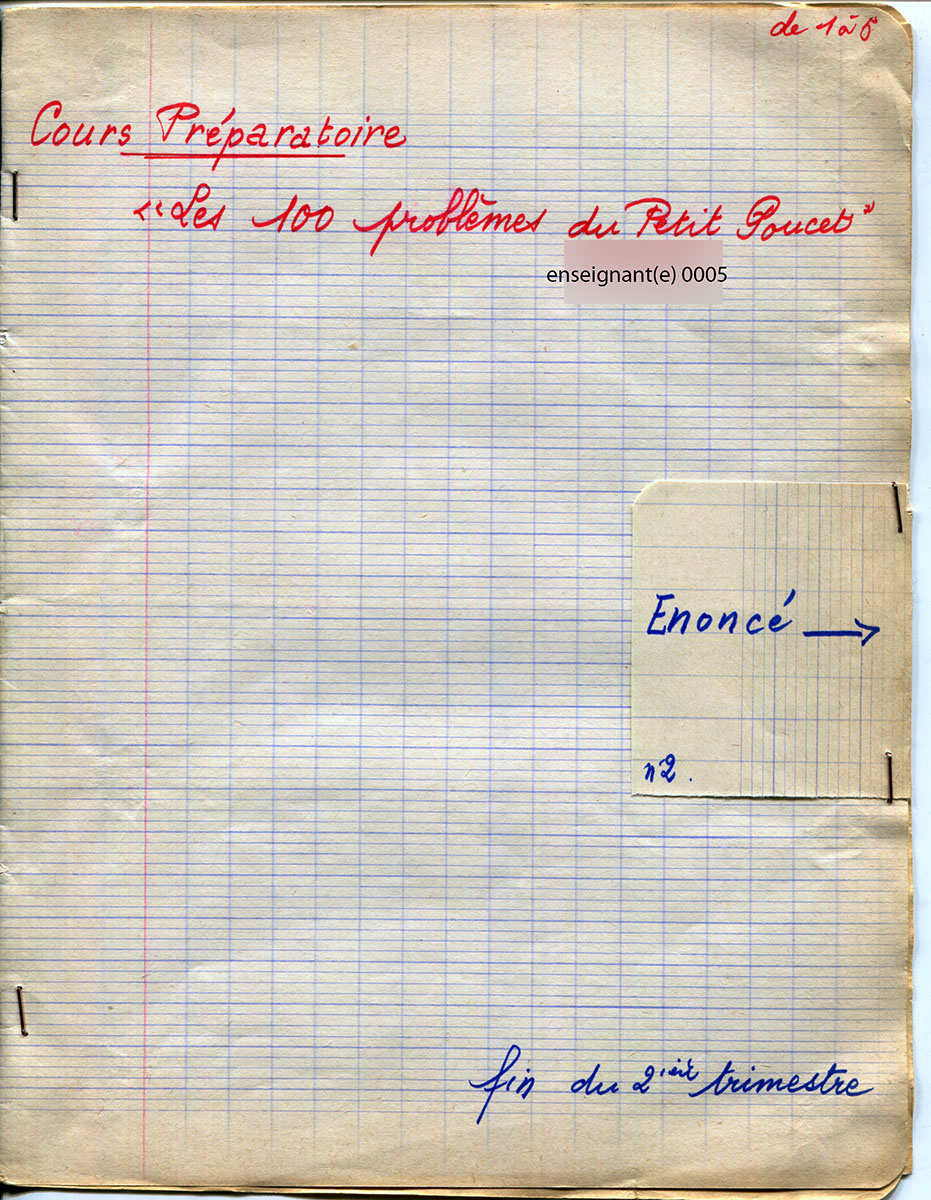 de 1 à 5
Cours Préparatoire
"Les 100 problèmes du Petit Poucet"
enseignant(e) 0005
Enoncé →
n2.
fin du 2ième trimestre